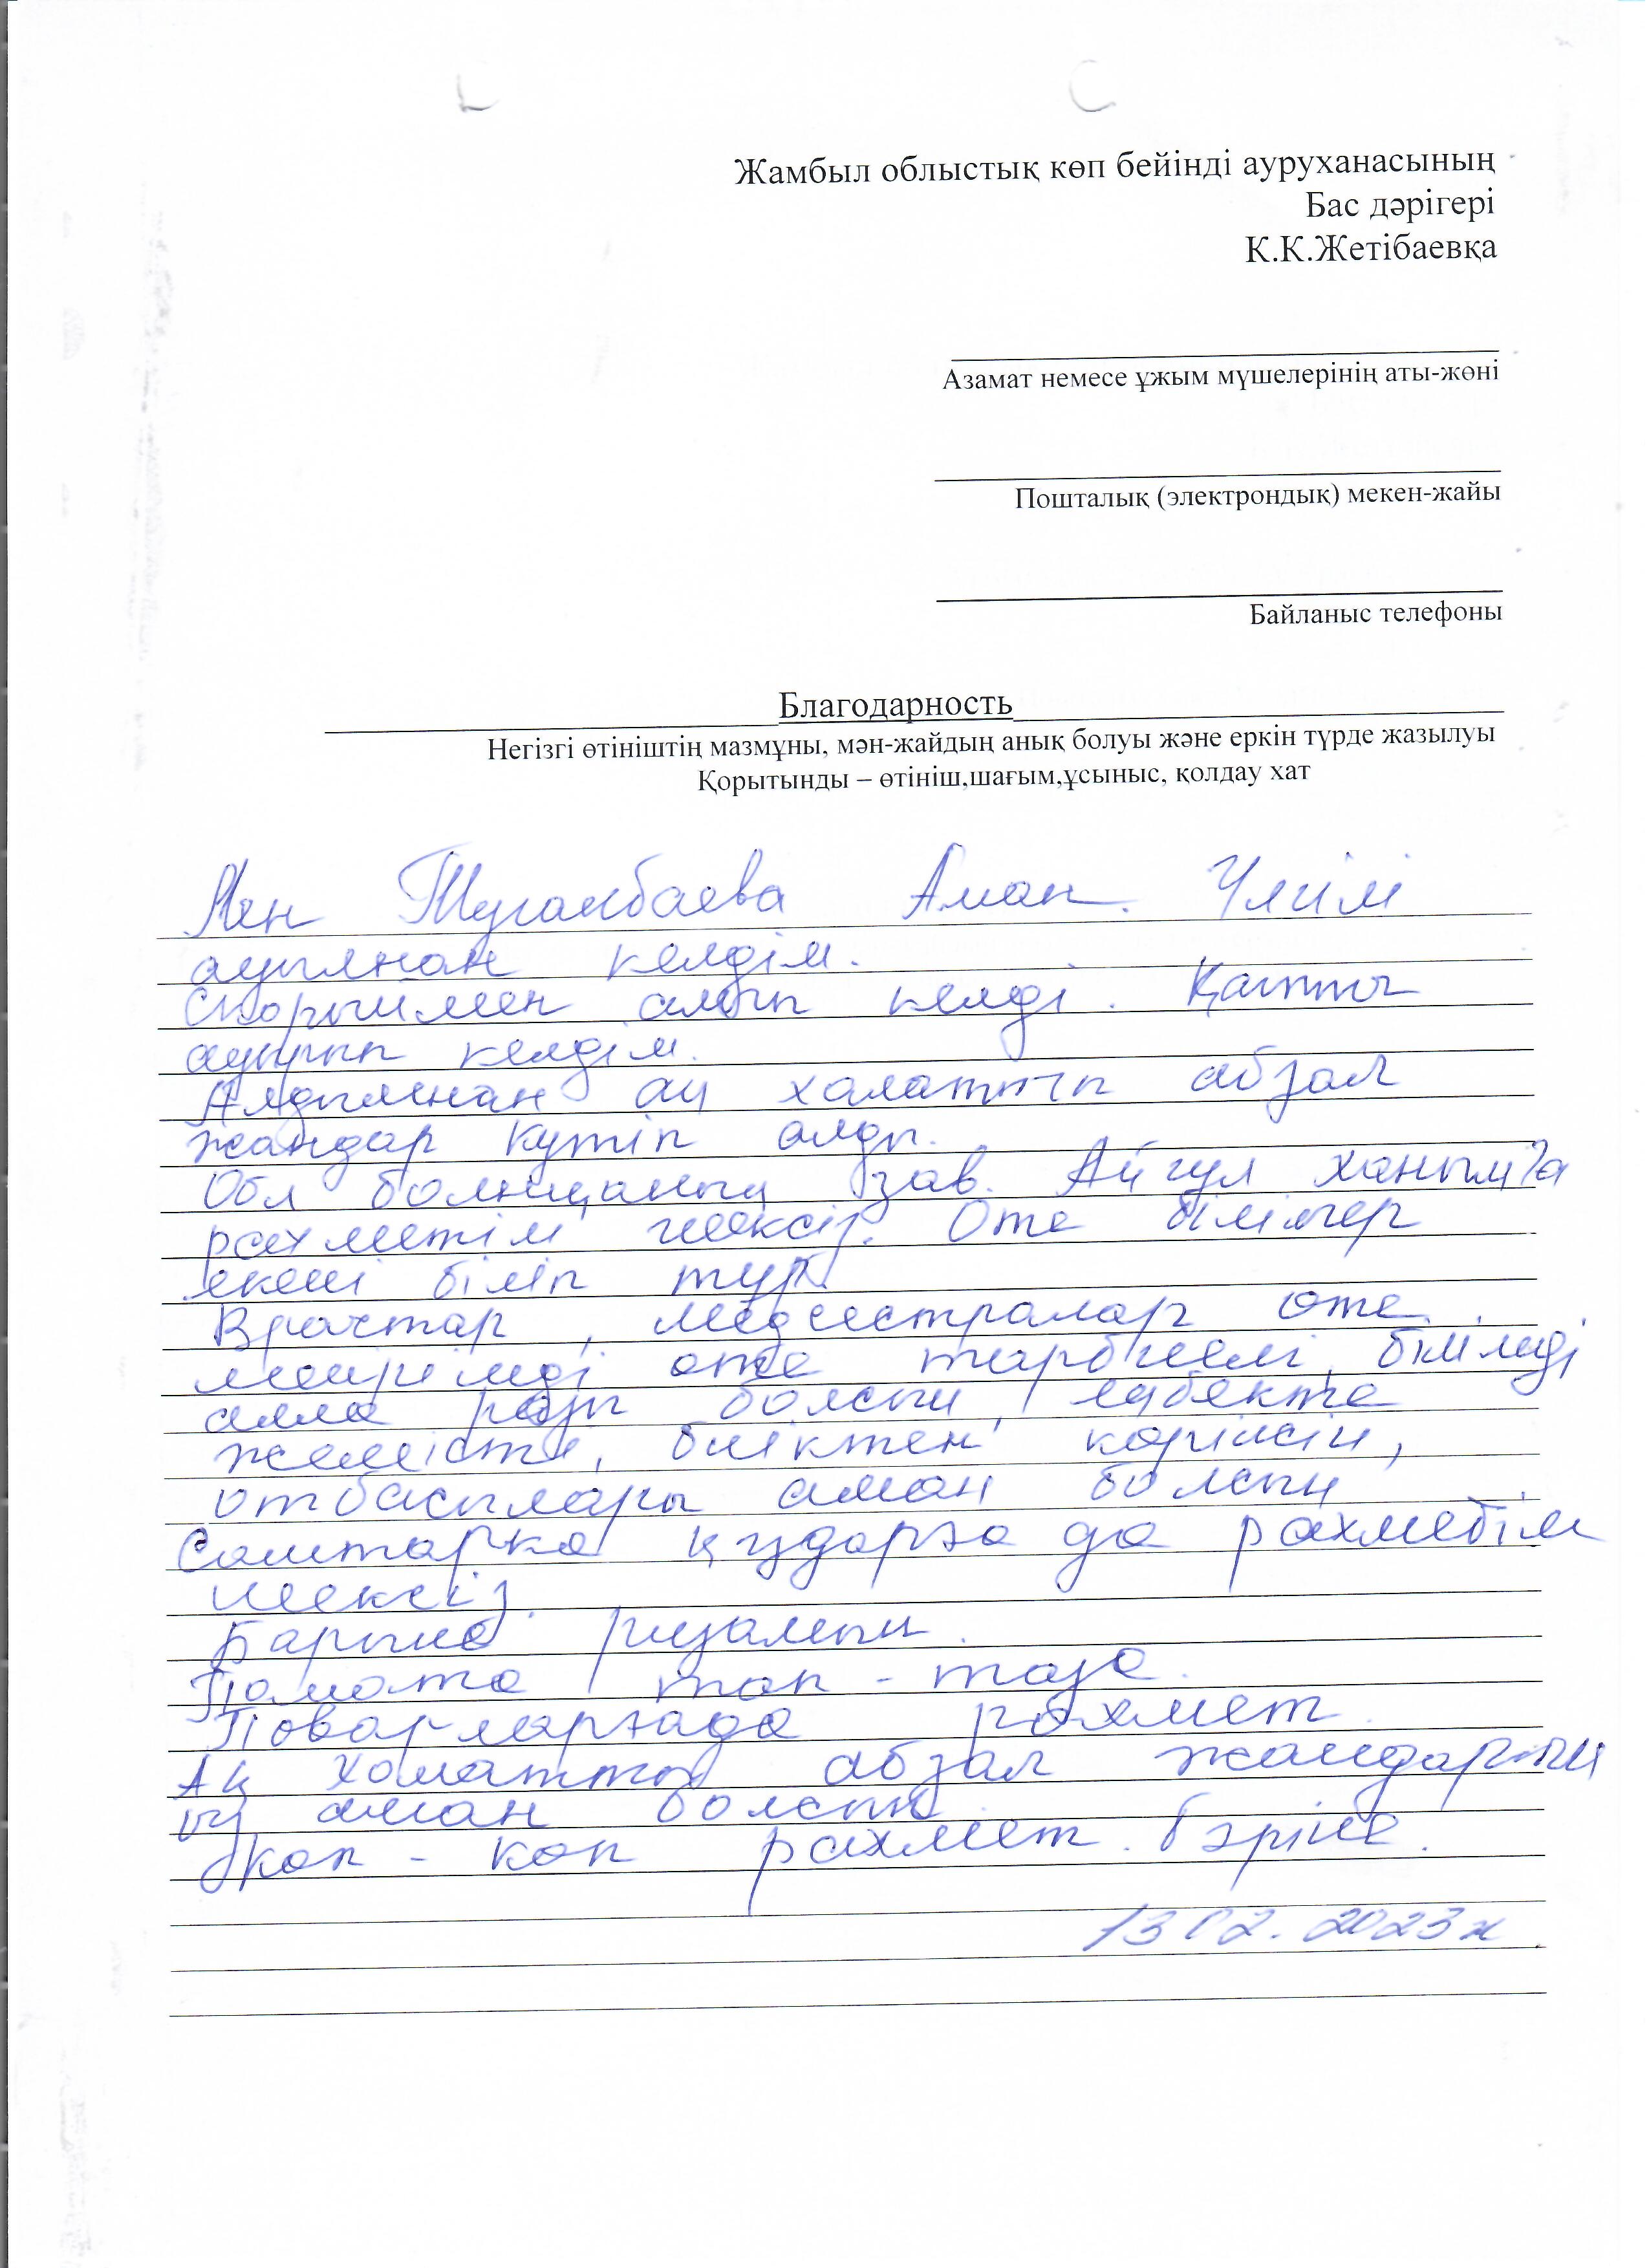 Жамбыл облыстық көп бейінді ауруханасының
Бас дәрігері
К.К.Жетібаевқа
Азамат немесе ұжым мүшелерінің аты-жөні
Пошталық (электрондық) мекен-жайы
Байланыс телефоны
Благодарность
Негізгі өтініштің мазмұны, мән-жайдың анық болуы және еркін түрде жазылуы
Қорытынды – өтініш,шағым,ұсыныс, қолдау хат
Мен Тугамбаева Аман. Үлгілі
ауылнан келдім.
Скорыймен алып келді. Қатты
ауырып келдім.
Алдымнан ақ халатты абзал
жандар күтіп алды.
Обл болницаның зав. Айгул ханымға
рахметім шексіз. Оте білімгер
екені біліп тұр.
Врачтар, медсестралар оте
мейірімді оте тарбиелі, білімді
алла разы болсын, еңбекте
жемісті, биіктен көрінсін,
отбасылары аман болсын
Санитарка қыздарға да рахмебім
шексіз.
Барыне ризамын.
Палата тап - таза.
Поварларғада рахмет
Ақ халатты абзал жандарын
аман болсын
коп - коп рахмет. бәріне.
13 02. 2023ж